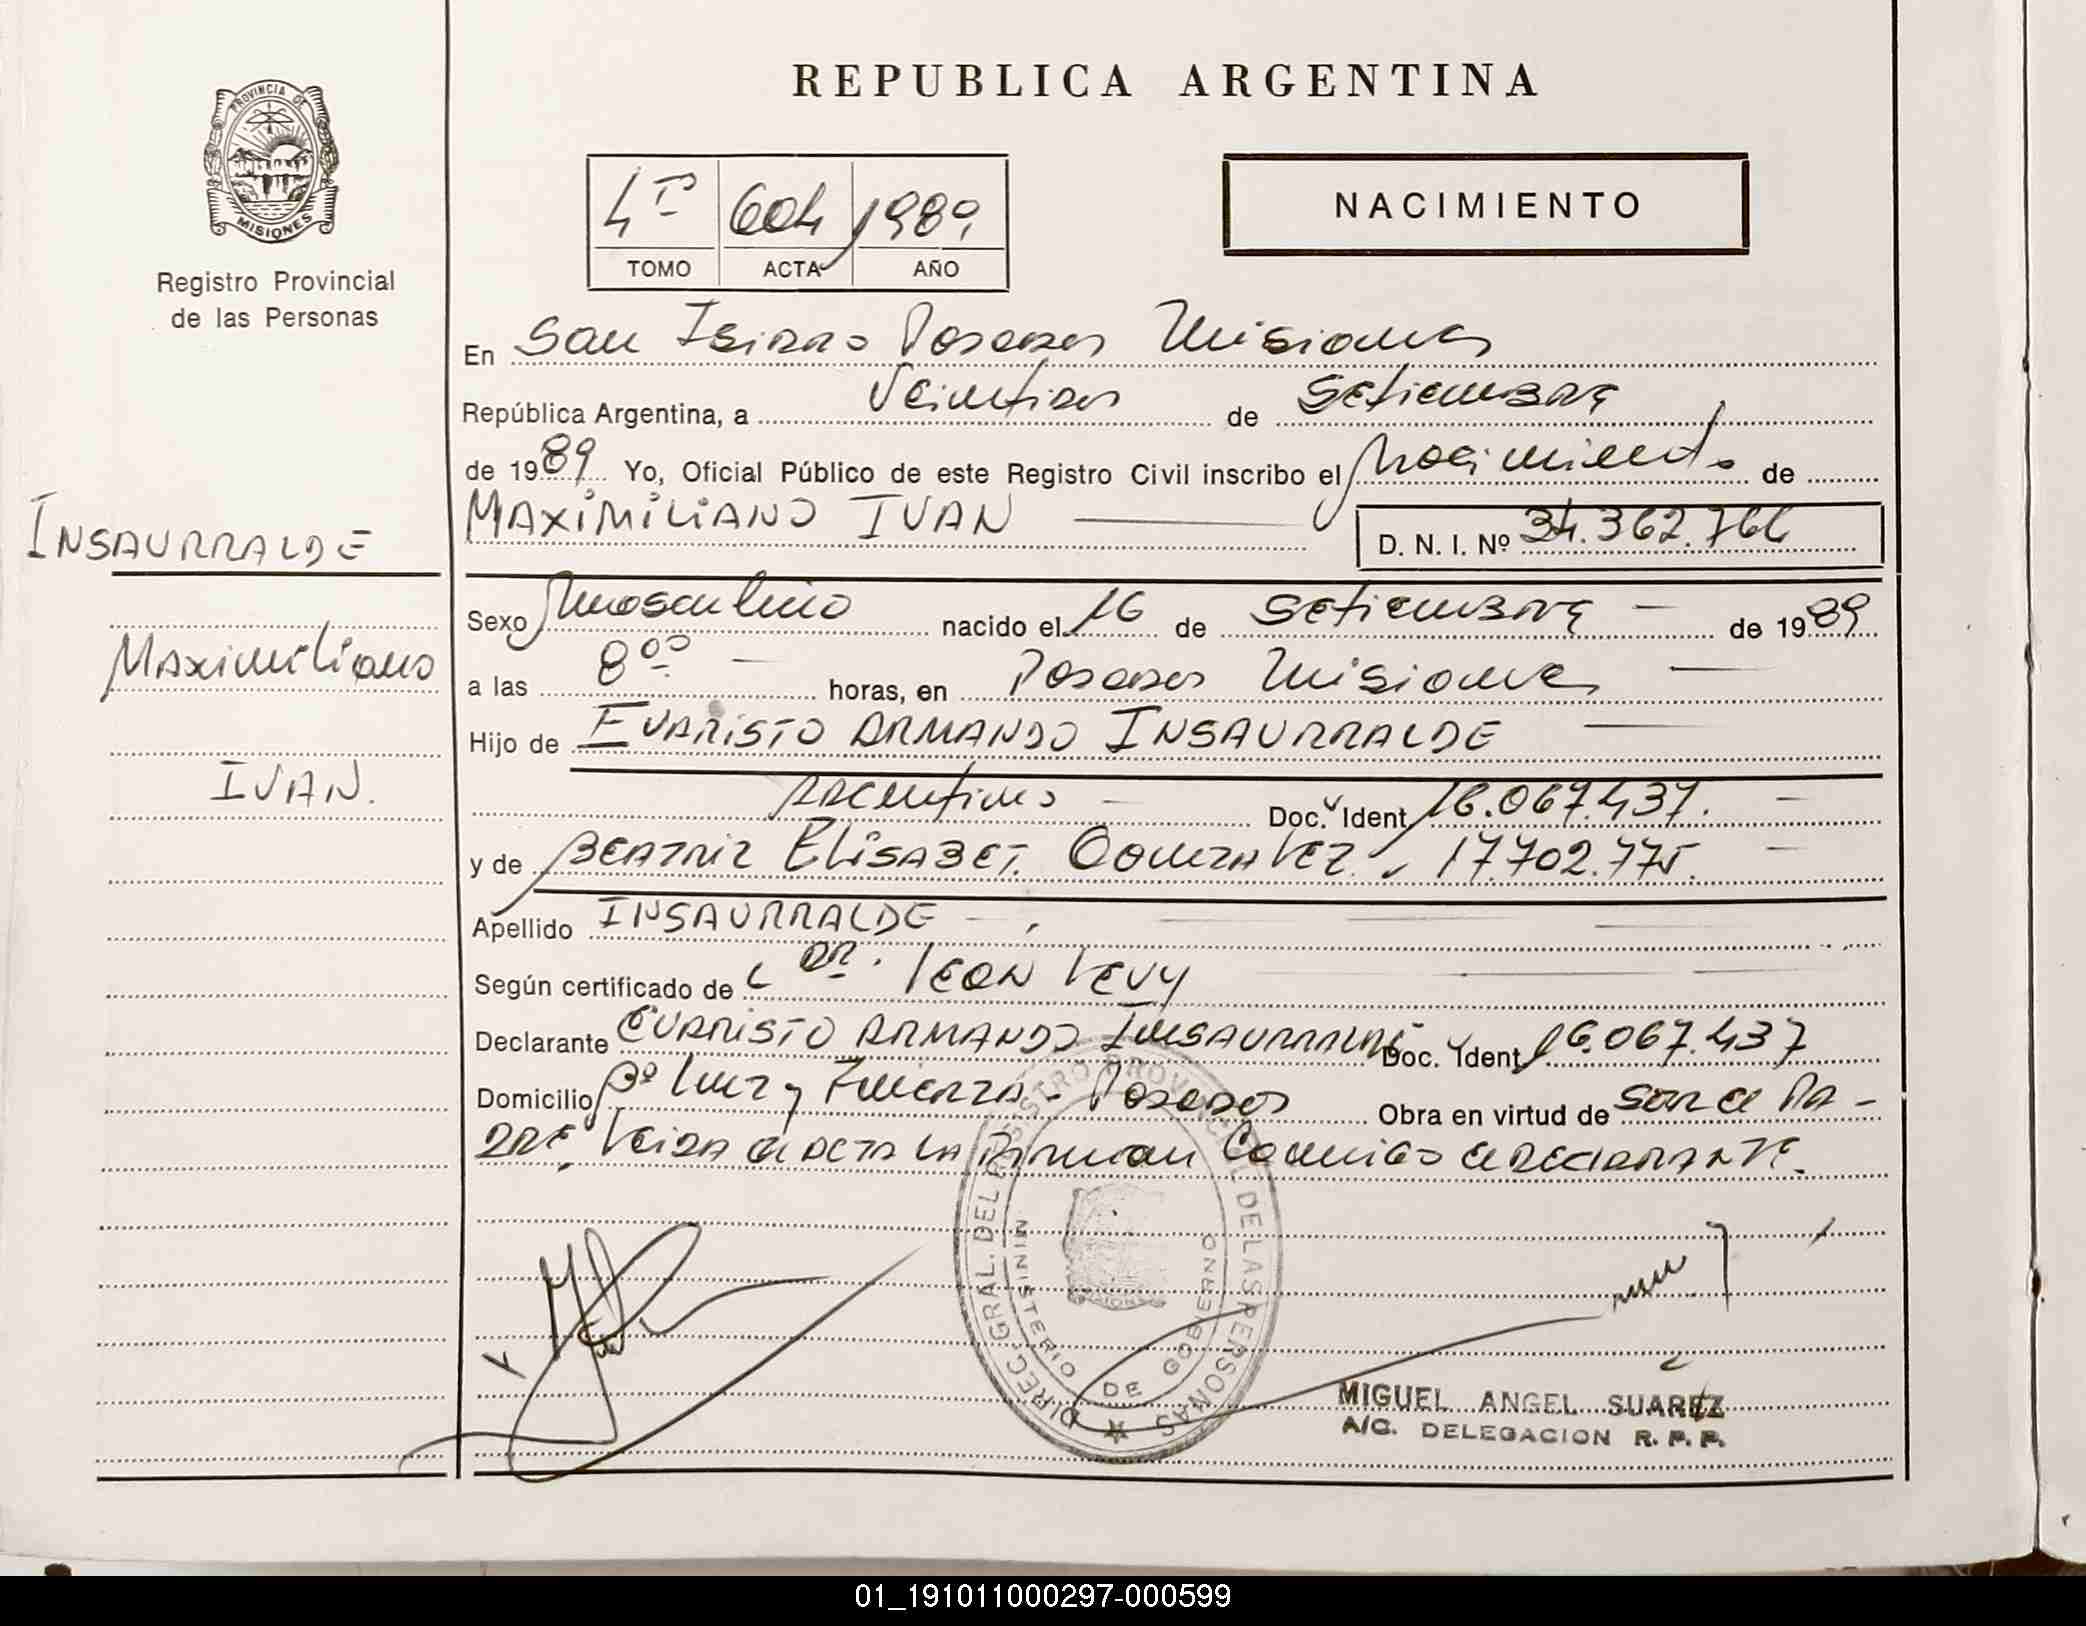 REPUBLICA ARGENTINA
PROVINCIA DE
MISIONES
Registro Provincial
de las Personas
4º 604 1989
TOMO ACTA AÑO
NACIMIENTO
En San Isidro Posadas Misiones
República Argentina, a Veintidos de Setiembre
de 1989 Yo, Oficial Público de este Registro Civil inscribo el Nacimiento de
MAXIMILIANO IVAN
D. N. I. Nº 34.362.766
INSAURRALDE
Maximiliano
IVAN.
Sexo Masculino nacido el 16 de Setiembre de 1989
a las 8⁰⁰ horas, en Posadas Misiones
Hijo de EVARISTO ARMANDO INSAURRALDE
Argentino Doc. Ident 16.067.437.
y de BEATRIZ ELISABET. GONZALEZ. 17.702.775.
Apellido INSAURRALDE
Según certificado de DR. LEON LEVY
Declarante EVARISTO ARMANDO INSAURRALDE Doc. Ident 16.067.437
Domicilio Bº Luz y Fuerza - Posadas Obra en virtud de Ser el Pa-
dre, Leida el acta la firman Conmigo el declarante.
DIREC. GRAL. DEL REGISTRO PROVINCIAL DE LAS PERSONAS
MINISTERIO DE GOBIERNO
MIGUEL ANGEL SUAREZ
A/C. DELEGACION R. P. P.
01_191011000297-000599